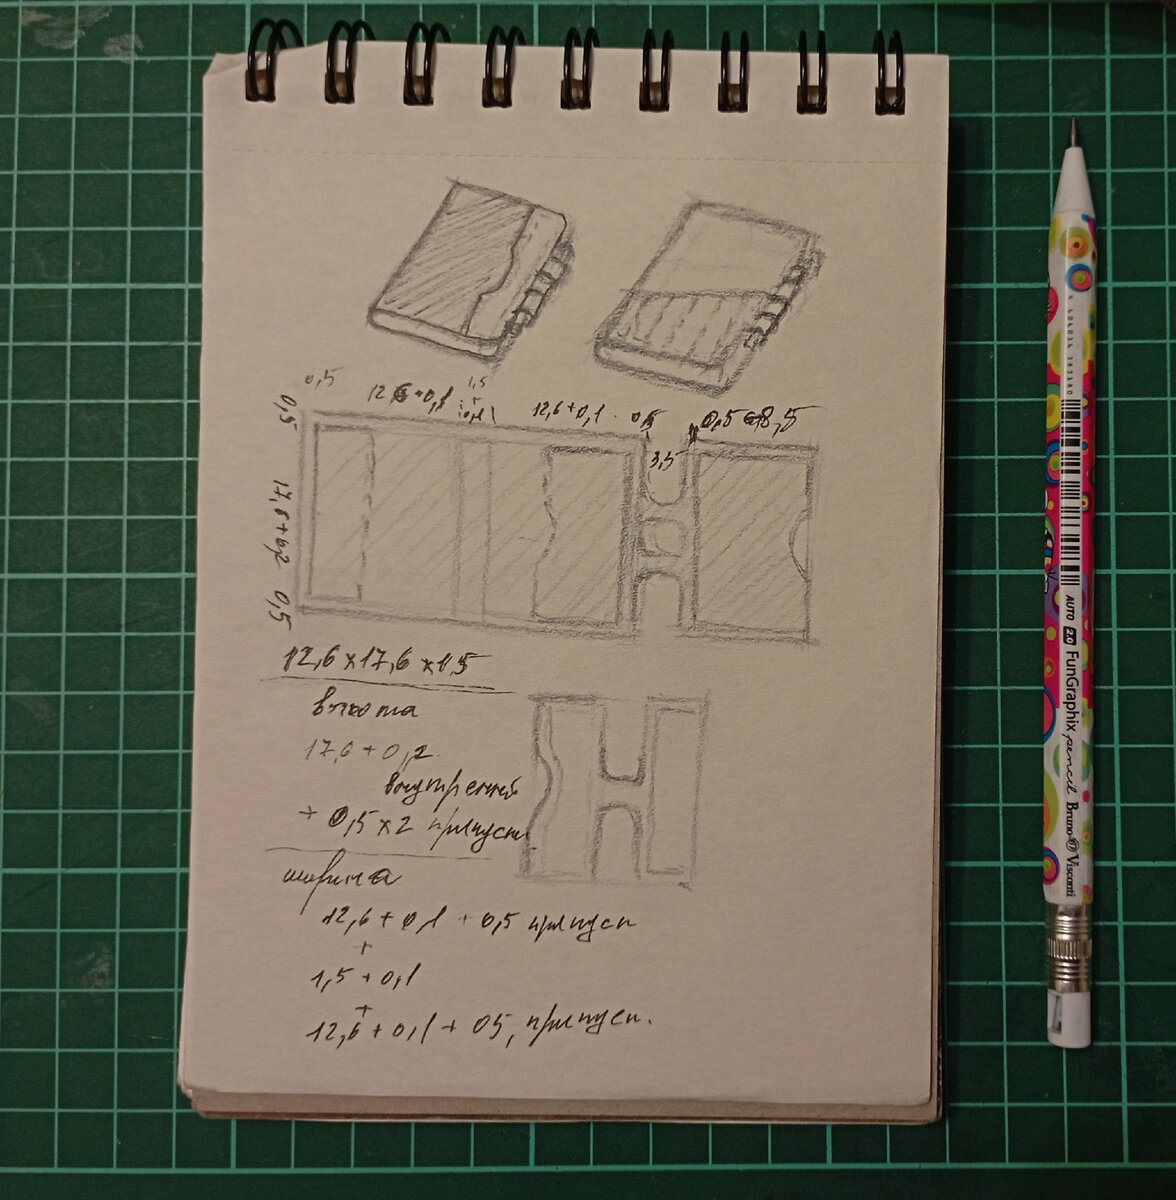 0,5
12,6+0,1
1,5
+
0,1
12,6+0,1
0,5
0,5
8,5
0,5
3,5
17,6+0,2
0,5
12,6×17,6×1,5
высота
17,6+0,2
внутренний
+ 0,5×2 припуски
ширина
12,6+0,1+0,5 припуск
+
1,5+0,1
+
12,6+0,1+05, припуск.
AUTO 2.0 FunGraphix pencil Bruno Visconti